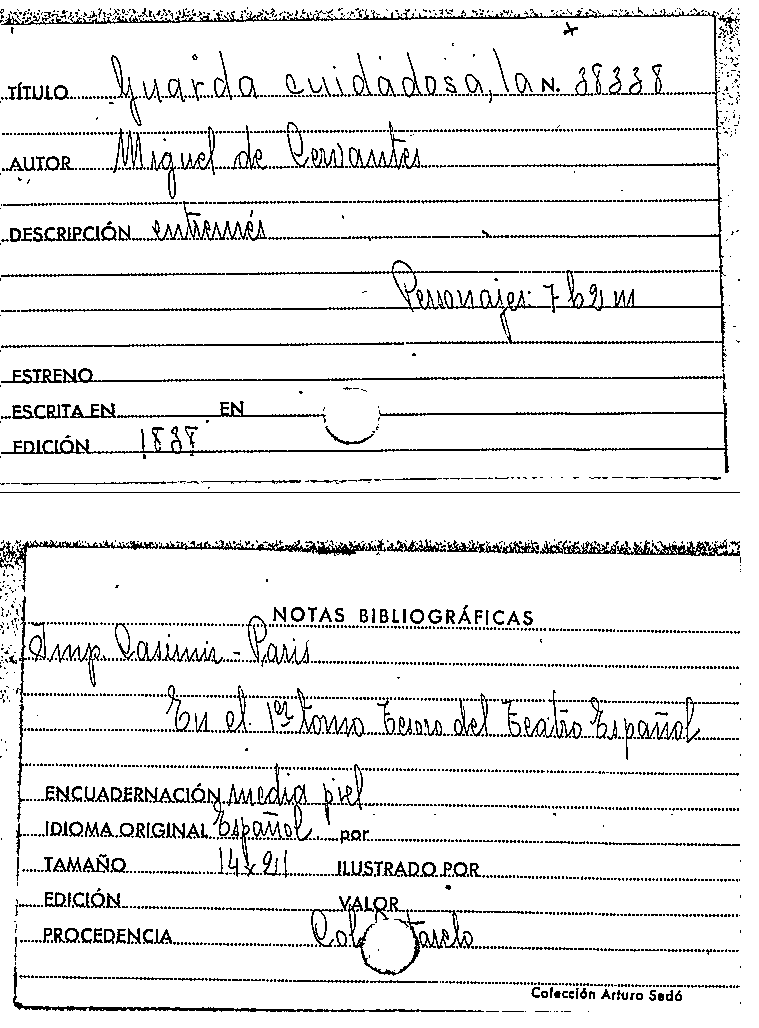 TÍTULO Guarda cuidadosa, la N. 38338
AUTOR Miguel de Cervantes
DESCRIPCIÓN entremés
Personajes: 7 h 2 m
ESTRENO
ESCRITA EN EN
EDICIÓN 1838
NOTAS BIBLIOGRÁFICAS
Imp. Casimir - Paris
En el 1er tomo Tesoro del Teatro Español
ENCUADERNACIÓN media piel
IDIOMA ORIGINAL Español por
TAMAÑO 14 x 21 ILUSTRADO POR
EDICIÓN VALOR
PROCEDENCIA Col
Colección Arturo Sedó